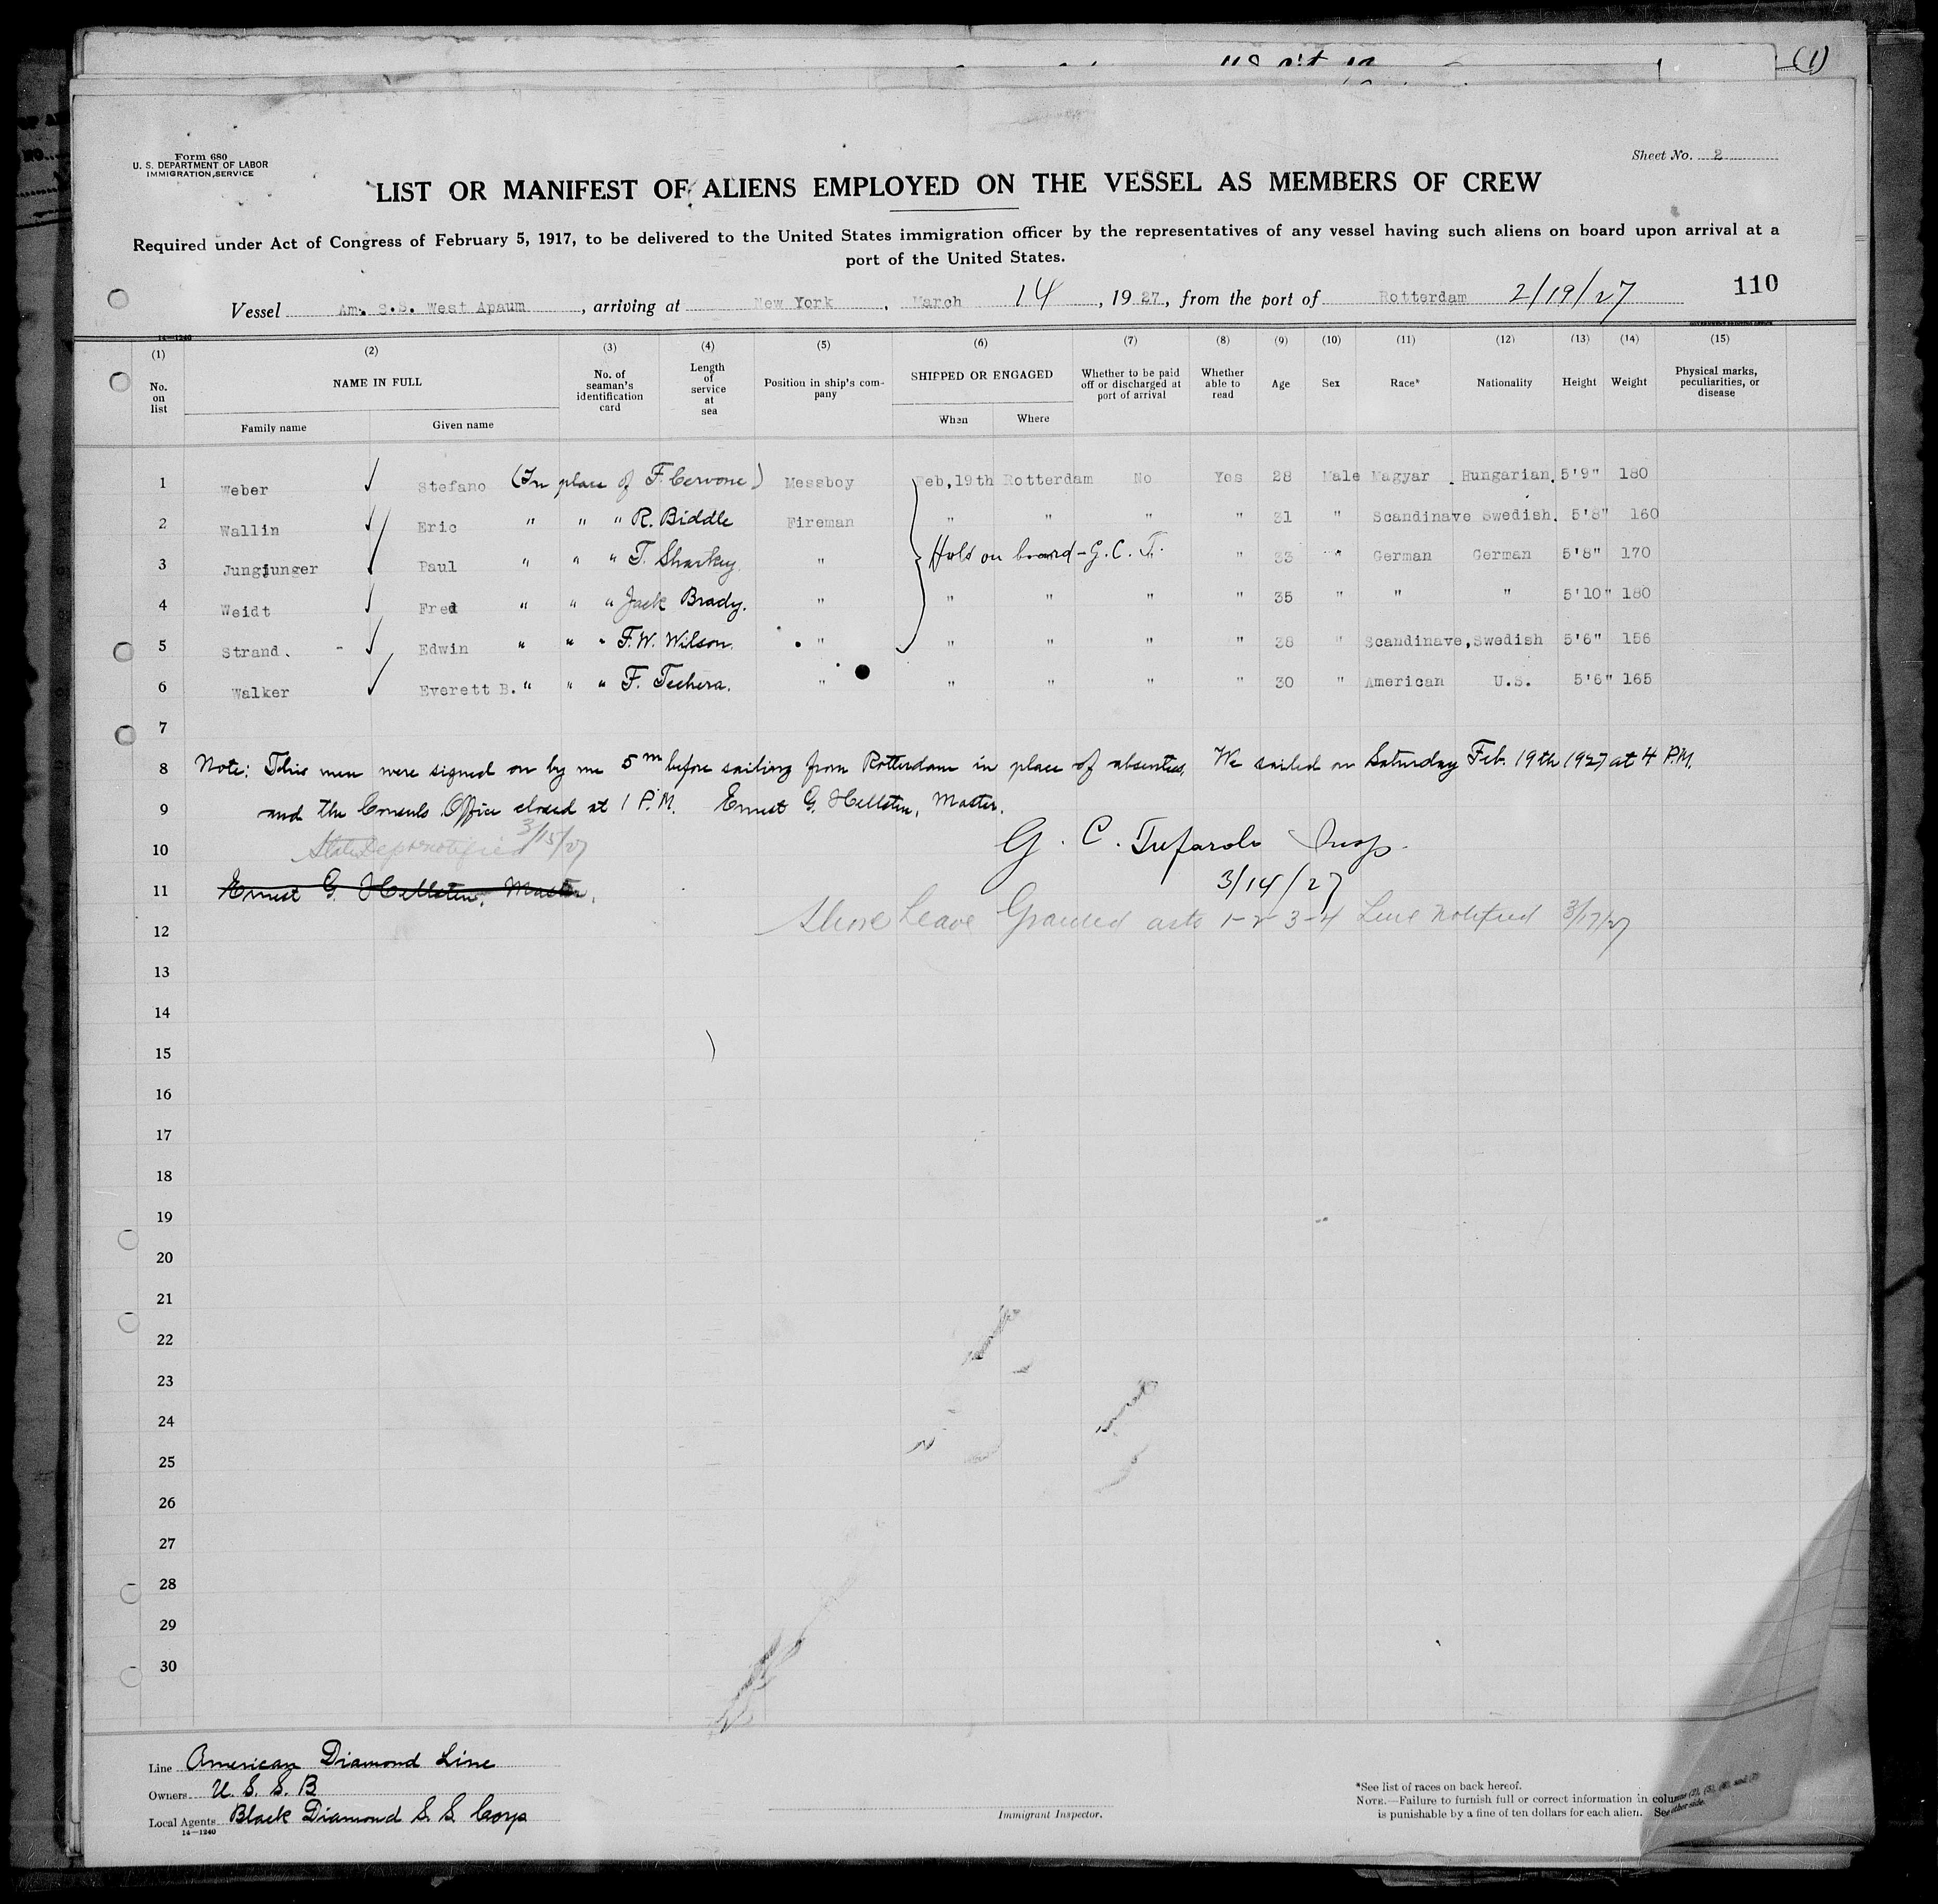 (1)
Form 680
U. S. DEPARTMENT OF LABOR
IMMIGRATION SERVICE
Sheet No. 2
LIST OR MANIFEST OF ALIENS EMPLOYED ON THE VESSEL AS MEMBERS OF CREW
Required under Act of Congress of February 5, 1917, to be delivered to the United States immigration officer by the representatives of any vessel having such aliens on board upon arrival at a
port of the United States.
110
Vessel Am. S.S. West Apaum, arriving at New York, March 14, 1927, from the port of Rotterdam 2/19/27
14—1240
(1) (2) (3) (4) (5) (6) (7) (8) (9) (10) (11) (12) (13) (14) (15)
No. on list NAME IN FULL Family name Given name No. of seaman's identification card Length of service at sea Position in ship's company SHIPPED OR ENGAGED When Where Whether to be paid off or discharged at port of arrival Whether able to read Age Sex Race* Nationality Height Weight Physical marks, peculiarities, or disease
1 Weber Stefano (In place of F. Cervone) Messboy Feb,19th Rotterdam No Yes 28 Male Magyar Hungarian 5'9" 180
2 Wallin Eric " " " R. Biddle Fireman " " " " 31 " Scandinave Swedish. 5'8" 160
3 Jungjunger Paul " " " T. Sharkey " Hold on board - G. C. T. " 33 " German German 5'8" 170
4 Weidt Fred " " " Jack Brady. " " " " " 35 " " " 5'10" 180
5 Strand. Edwin " " " F.W. Wilson. " " " " " 38 " Scandinave, Swedish 5'6" 156
6 Walker Everett B. " " " F. Techera. " " " " " 30 " American U.S. 5'6" 165
7
8 Note: This men were signed on by me 5m before sailing from Rotterdam in place of absentees. We sailed on Saturday Feb. 19th 1927 at 4 P.M.
9 and the Consuls Office closed at 1 P.M. Ernest G. Hellsten, Master.
10 State Dept notified 3/15/27 G. C. Tufarolo Insp.
3/14/27
11 Ernest G. Hellsten, Master.
12 Shore Leave Granted arts 1-2-3-4 Line Notified 3/17/27
13
14
15
16
17
18
19
20
21
22
23
24
25
26
27
28
29
30
Line American Diamond Line
Owners U. S. S. B
Local Agents Black Diamond S. S. Corp
14—1240
Immigrant Inspector.
*See list of races on back hereof.
NOTE.—Failure to furnish full or correct information in columns (2), (5), (6), and (7)
is punishable by a fine of ten dollars for each alien. See other side.